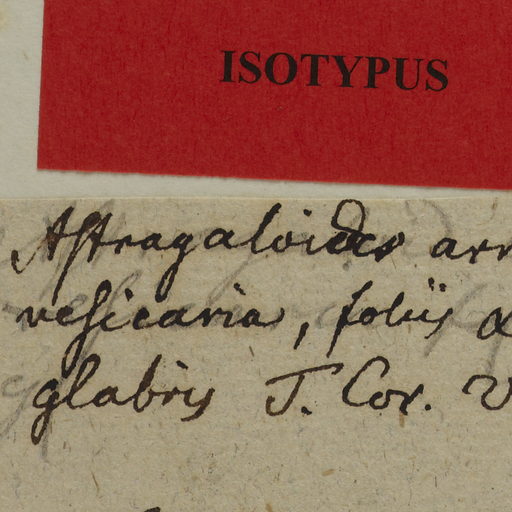 ISOTYPUS
Astragaloides
vesicaria, foliis
glabris T. Cor.